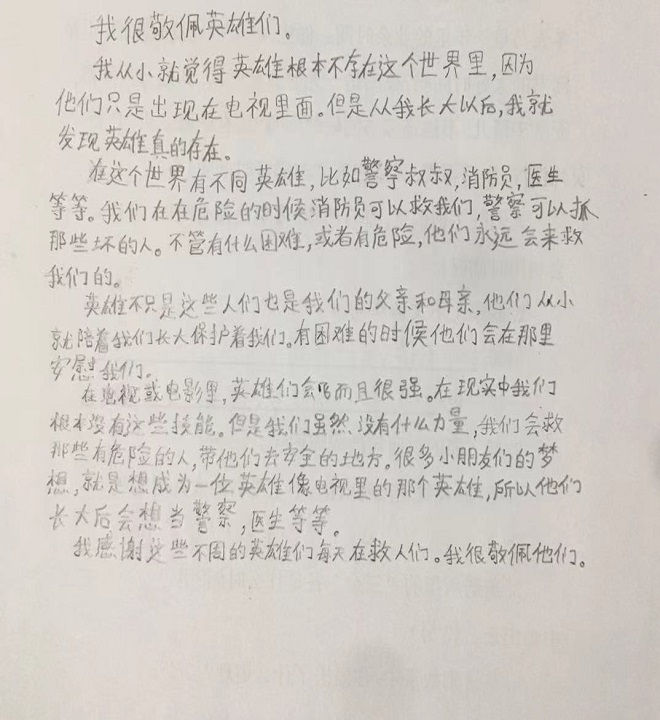 我很敬佩英雄们。
我从小就觉得英雄根本不存在这个世界里，因为
他们只是出现在电视里面。但是从我长大以后，我就
发现英雄真的存在。
在这个世界有不同英雄，比如警察叔叔，消防员，医生
等等。我们在在危险的时候消防员可以救我们，警察可以抓
那些坏的人。不管有什么困难，或者有危险，他们永远会来救
我们的。
英雄不只是这些人们也是我们的父亲和母亲，他们从小
就陪着我们长大保护着我们。有困难的时候他们会在那里
安慰我们。
在电视或电影里，英雄们会飞而且很强。在现实中我们
根本没有这些技能。但是我们虽然没有什么力量，我们会救
那些有危险的人，带他们去安全的地方。很多小朋友们的梦
想，就是想成为一位英雄像电视里的那个英雄，所以他们
长大后会想当警察，医生等等。
我感谢这些不同的英雄们每天在救人们。我很敬佩他们。